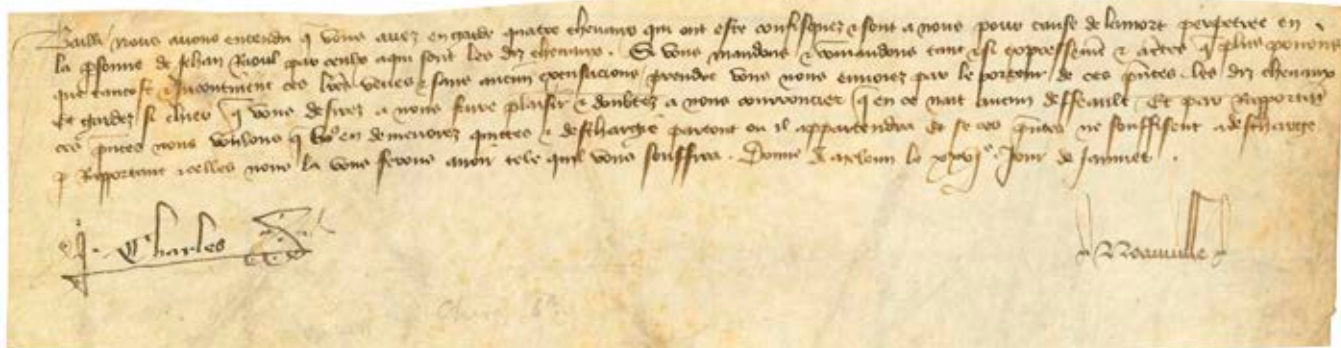 Bailli nous avons entendu q̃ vous avez en garde quatre chevaux qui ont este confisquez & sont a nous pour cause de la mort perpetree en
la p̃sonne de Jehan Raoul par ceulx a qui sont les diz chevaux . Si vous mandons & cõmandons tant & si expressem̃t & acertes q̃ plus povons
que tantost & Incontinent ces lr̃es veues & sans aucun excusacions prendre vous nous envoiez par le porteur de ces p̃ntes les diz chevaux
Et gardez si chier q̃ vous desirez a nous faire plaisir & doubtez a nous courroucier q̃ en ce nait aucun deffault Et par Rapportant
ces p̃ntes nous voulons q̃ vo⁹ en demeurez quittes & deschargie partout ou il appartendra Et se ces p̃ntes ne souffisent a descharge
p Rapportant icelles nous la vous ferons avoir tele quil vous souffira . Donne a le xxvjᵉ Jour de Janvier .
Charles